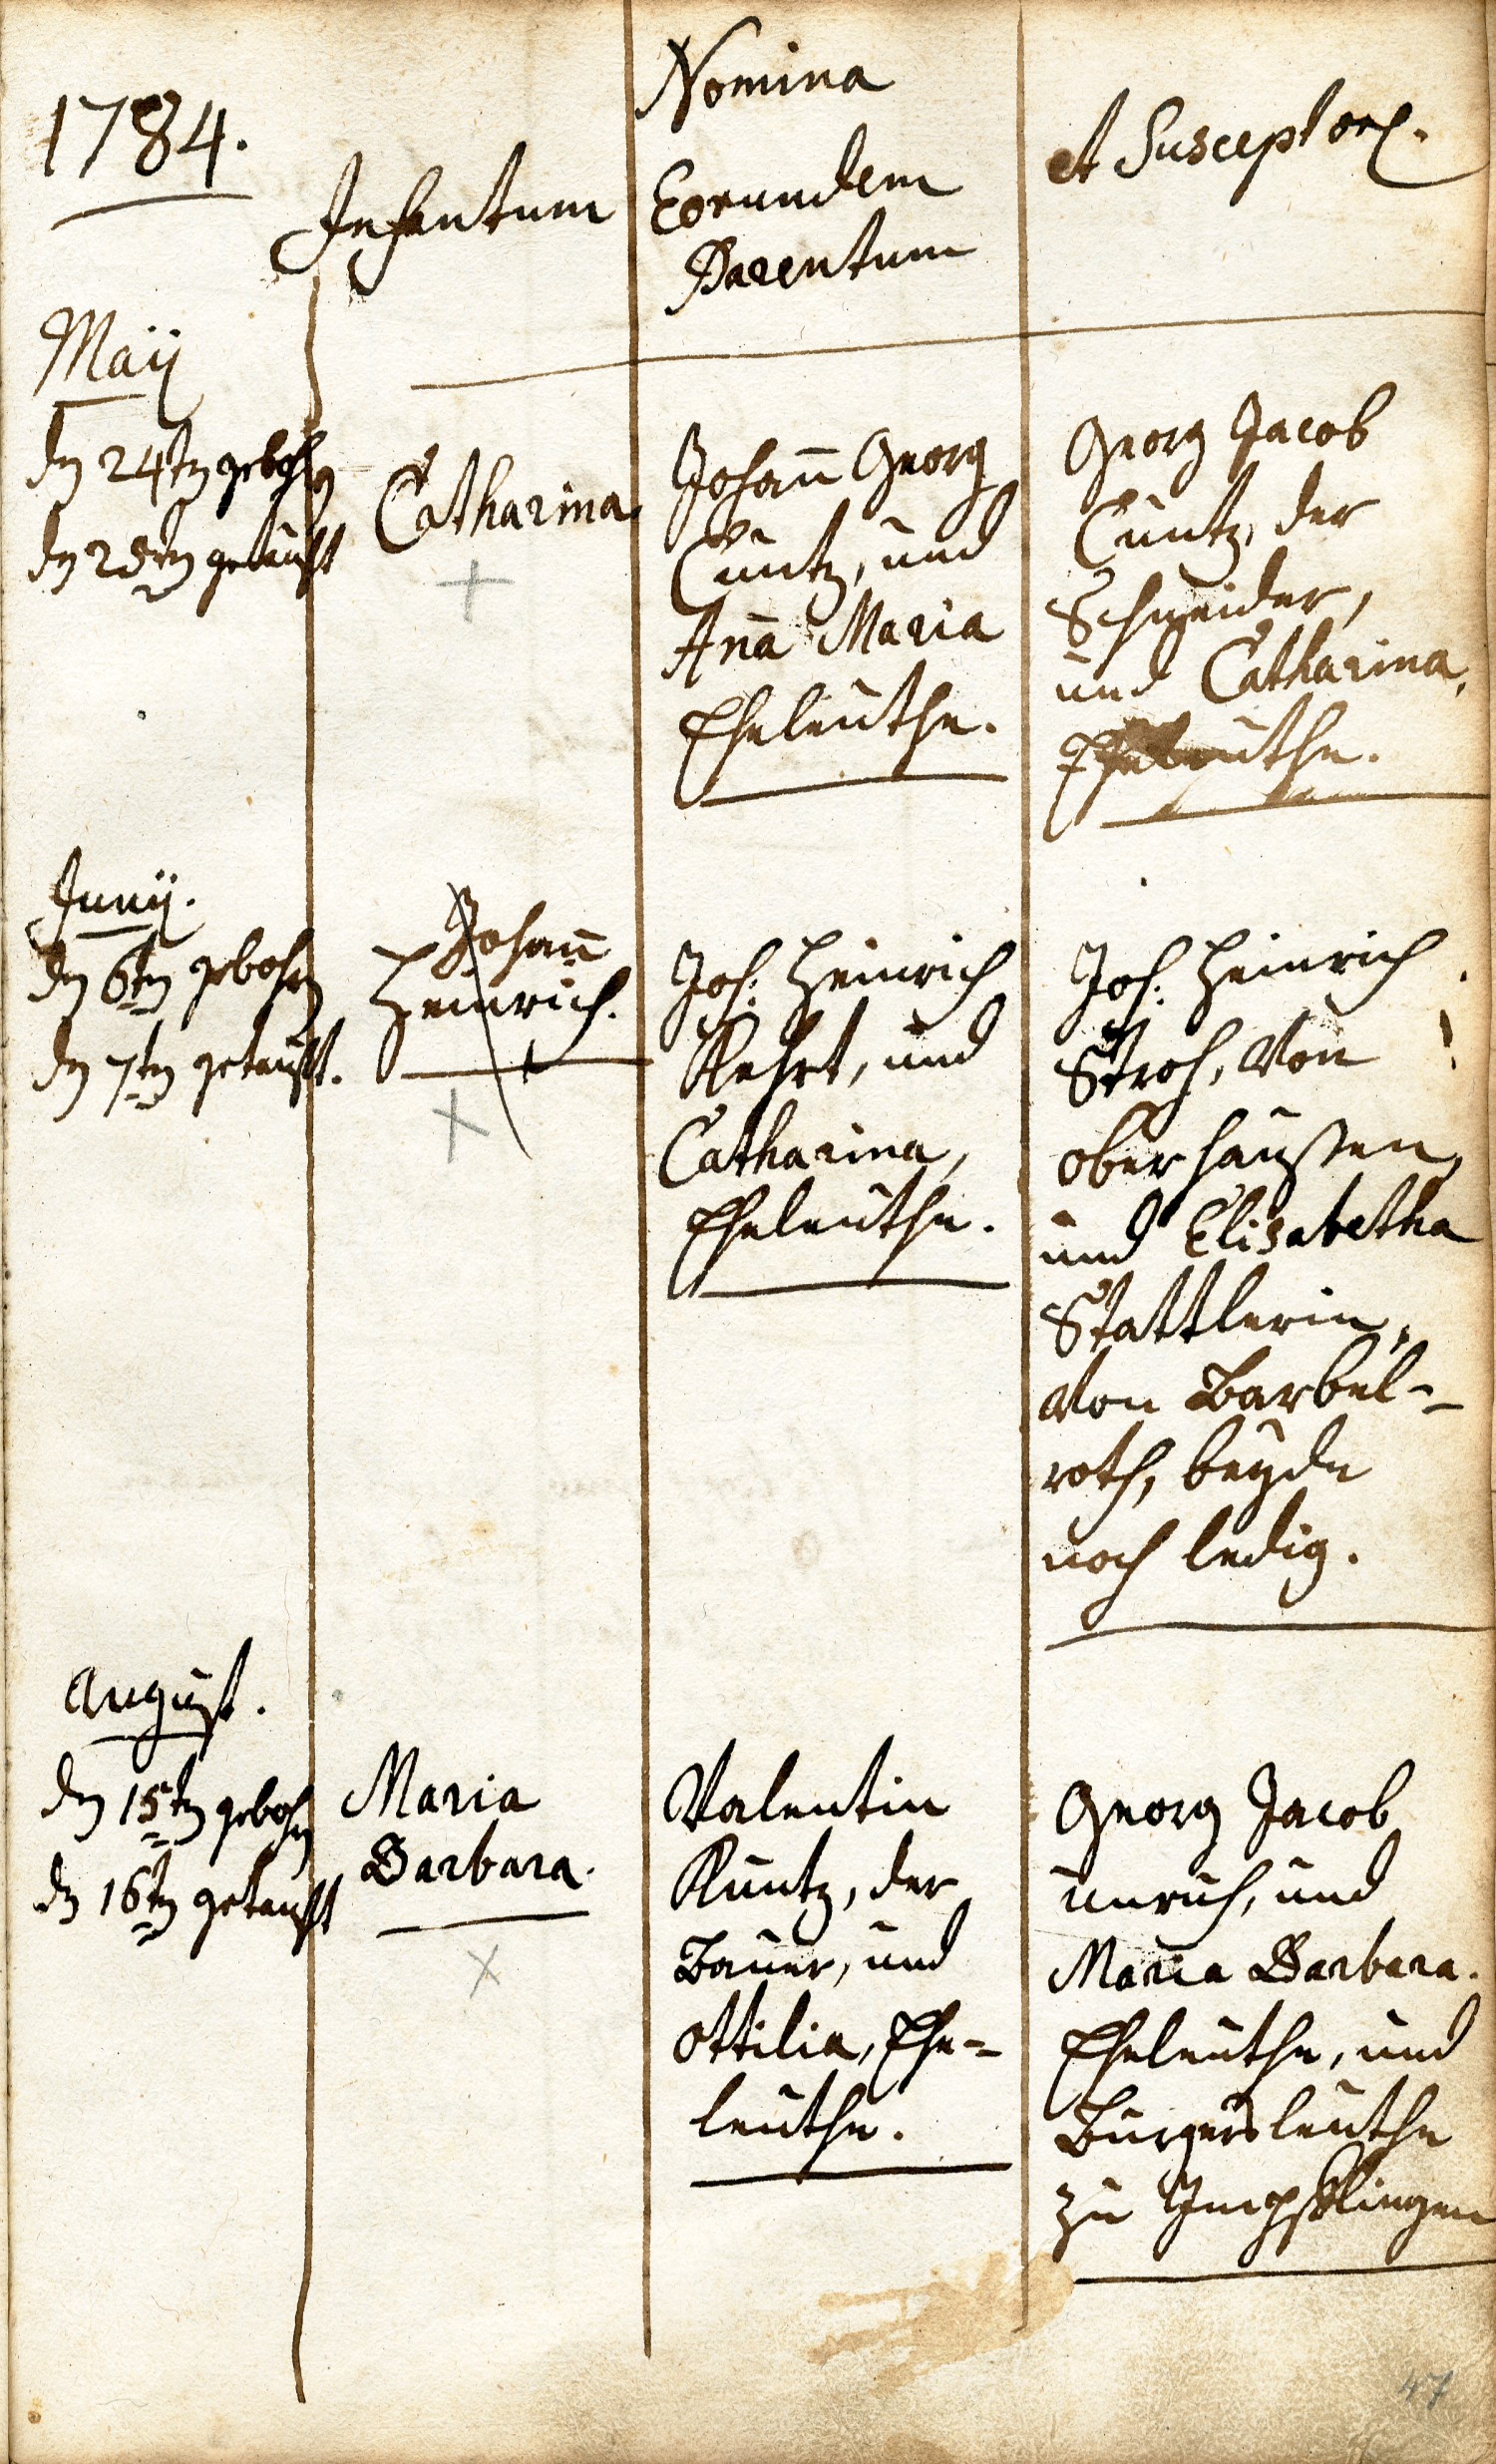 1784.
Infantum
Nomina
Eorundem
Parentum
et Susceptor.
Maij
dn 24tn gebohrn
dn 25tn getaufft
Catharina.
Johan̄ Georg
Cuntz, und
An̄a Maria
Eheleuthe.
Georg Jacob
Cuntz, der
Schneider,
und Catharina,
Eheleuthe.
Junij.
dn 6tn gebohrn
dn 7tn getaufft.
Johan̄
Heinrich.
Joh: Heinrich
Kehrt, und
Catharina,
Eheleuthe.
Joh: Heinrich
Stroh, von
oberhaußen,
und Elisabetha
Stattlerin,
von Barbel-
roth, beyde
noch ledig.
August.
dn 15tn gebohrn
dn 16tn getaufft
Maria
Barbara.
Valentin
Kuntz, der
Bauer, und
Ottilia, Ehe-
leuthe.
Georg Jacob
Unruh, und
Maria Barbara.
Eheleuthe, und
Burgersleuthe
zu Impfflingen
47